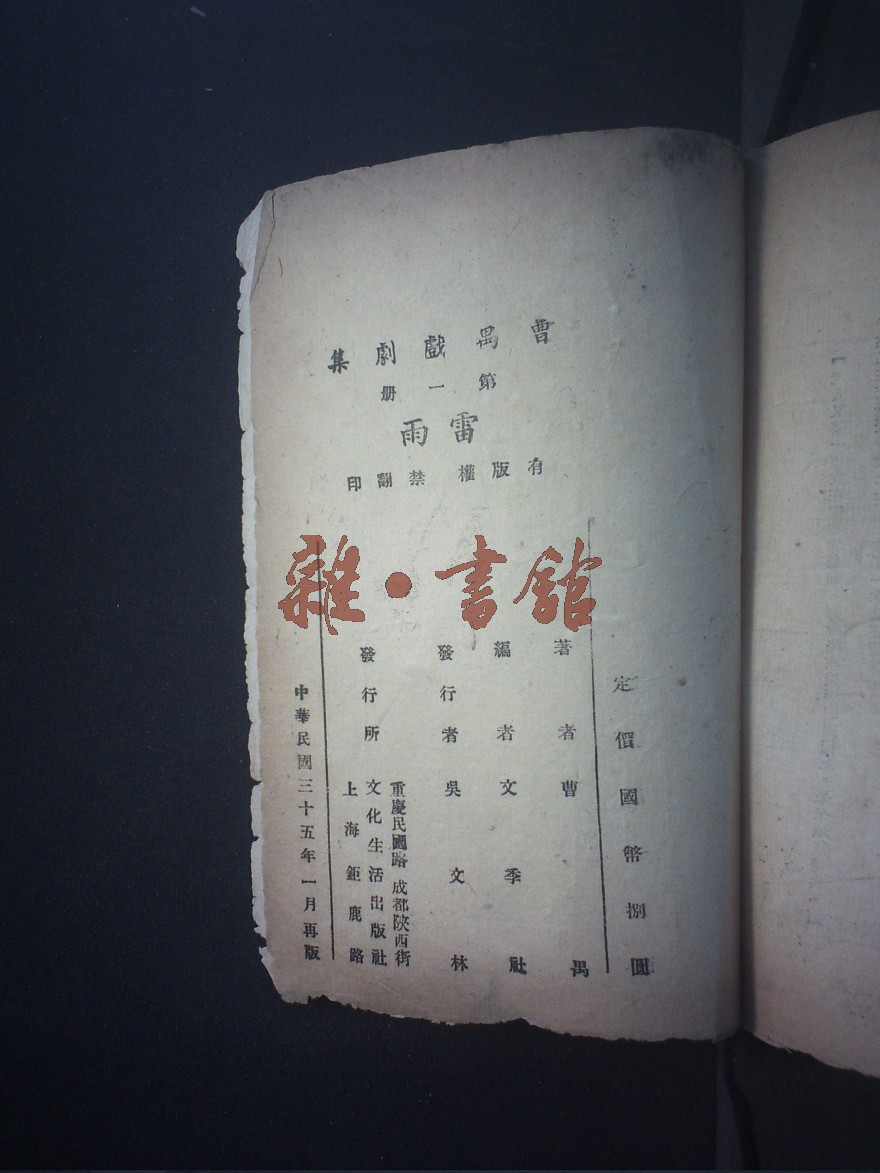 曹禺戲劇集
第一册
雷雨
有版權 禁翻印
雜·書館
定價國幣捌圓
著者 曹禺
編者 文季社
發行者 吳文林
發行所
重慶民國路 成都陝西街
文化生活出版社
上海鉅鹿路
中華民國三十五年一月再版